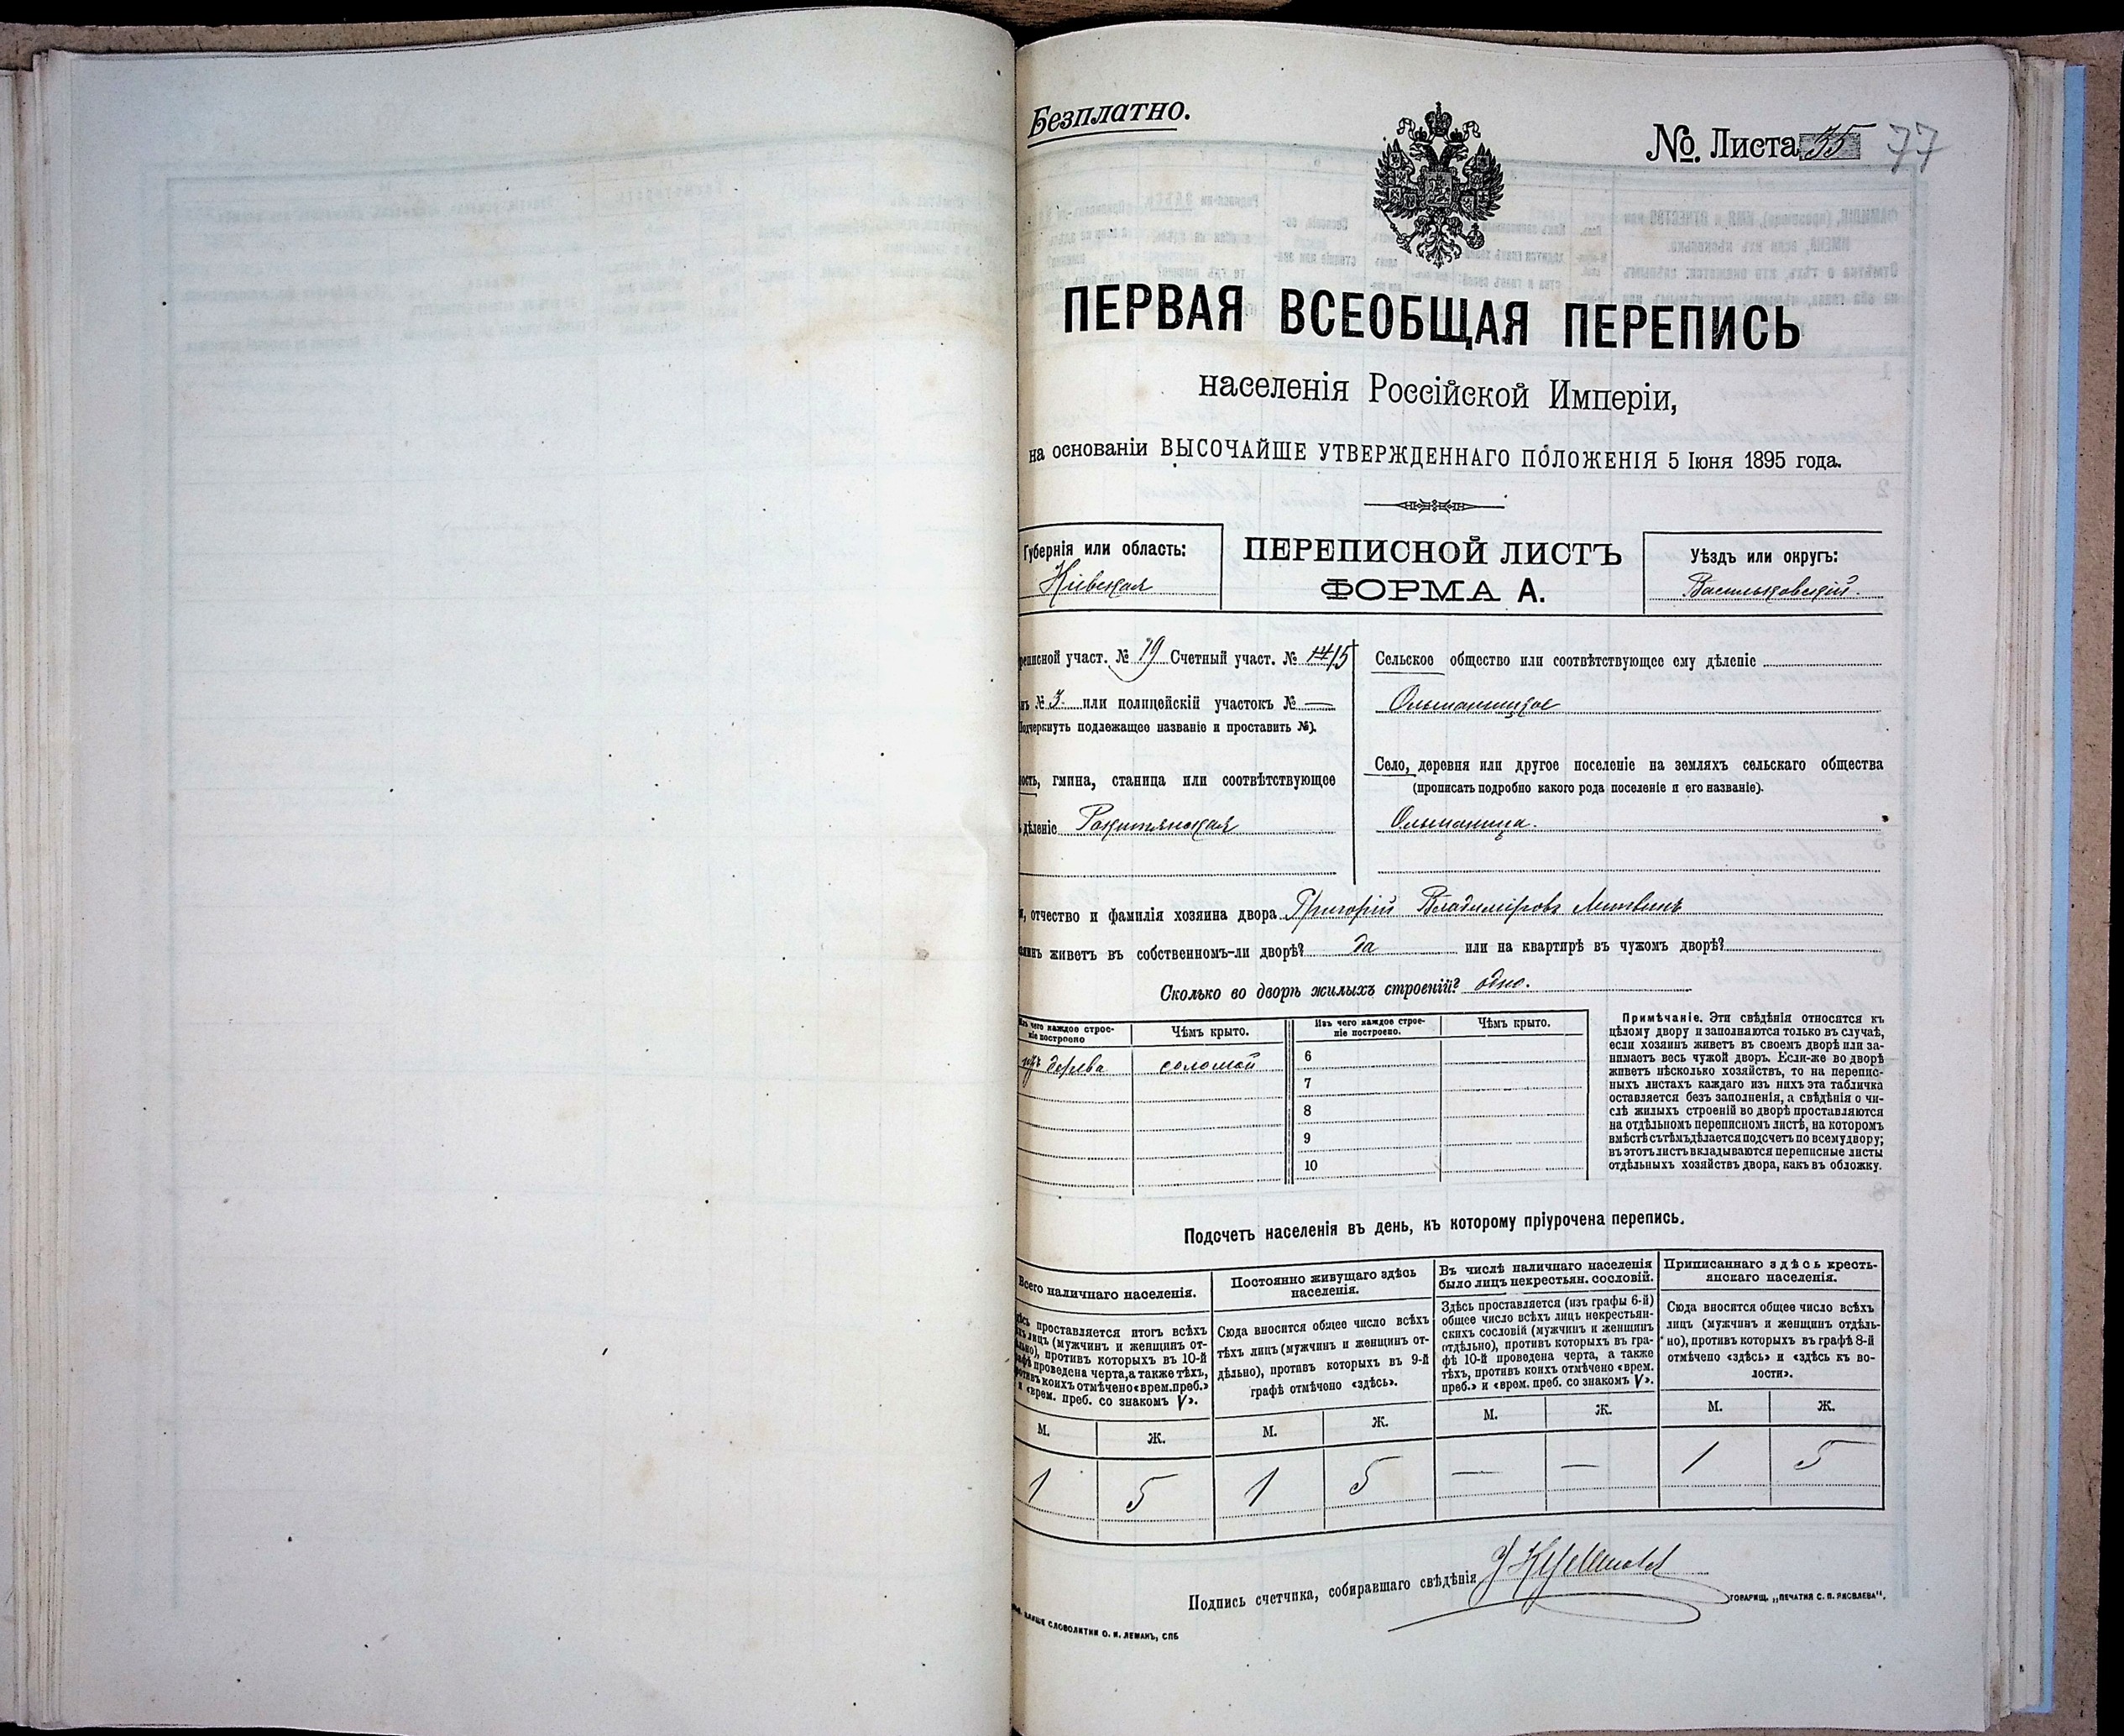 Безплатно.
№ Листа 35 77
ПЕРВАЯ ВСЕОБЩАЯ ПЕРЕПИСЬ
населенія Россійской Имперіи,
на основаніи ВЫСОЧАЙШЕ УТВЕРЖДЕННАГО ПОЛОЖЕНІЯ 5 Іюня 1895 года.
Губернія или область:
Кіевская
ПЕРЕПИСНОЙ ЛИСТЪ
ФОРМА А.
Уѣздъ или округъ:
Васильковскій.
реписной участ. № 19 Счетный участ. № 15
нъ № 3. или полицейскій участокъ № —
Подчеркнуть подлежащее названіе и проставить №).
ость, гмина, станица или соотвѣтствующее
дѣленіе Ракитянская
Сельское общество или соотвѣтствующее ему дѣленіе
Ольшаницкое
Село, деревня или другое поселеніе на земляхъ сельскаго общества
(прописать подробно какого рода поселеніе и его названіе).
Ольшаница.
я, отчество и фамилія хозяина двора Григорій Владиміровъ Литвинъ
зяинъ живетъ въ собственномъ-ли дворѣ? да или на квартирѣ въ чужомъ дворѣ?
Сколько во дворѣ жилыхъ строеній? одно.
Изъ чего каждое строе-
ніе построено
Чѣмъ крыто.
Изъ чего каждое строе-
ніе построено.
Чѣмъ крыто.
изъ дерева соломой
6
7
8
9
10
Примѣчаніе. Эти свѣдѣнія относятся къ
цѣлому двору и заполняются только въ случаѣ,
если хозяинъ живетъ въ своемъ дворѣ или за-
нимаетъ весь чужой дворъ. Если-же во дворѣ
живетъ нѣсколько хозяйствъ, то на перепис-
ныхъ листахъ каждаго изъ нихъ эта табличка
оставляется безъ заполненія, а свѣдѣнія о чи-
слѣ жилыхъ строеній во дворѣ проставляются
на отдѣльномъ переписномъ листѣ, на которомъ
вмѣстѣ съ тѣмъ дѣлается подсчетъ по всему двору;
въ этотъ листъ вкладываются переписные листы
отдѣльныхъ хозяйствъ двора, какъ въ обложку.
Подсчетъ населенія въ день, къ которому пріурочена перепись.
Всего наличнаго населенія.
здѣсь проставляется итогъ всѣхъ
хъ лицъ (мужчинъ и женщинъ от-
льно), противъ которыхъ въ 10-й
афѣ проведена черта, а также тѣхъ,
ротивъ коихъ отмѣчено «врем. преб.»
и «врем. преб. со знакомъ V».
М. Ж.
1 5
Постоянно живущаго здѣсь
населенія.
Сюда вносится общее число всѣхъ
тѣхъ лицъ (мужчинъ и женщинъ от-
дѣльно), противъ которыхъ въ 9-й
графѣ отмѣчено «здѣсь».
М. Ж.
1 5
Въ числѣ наличнаго населенія
было лицъ некрестьян. сословій.
Здѣсь проставляется (изъ графы 6-й)
общее число всѣхъ лицъ некрестьян-
скихъ сословій (мужчинъ и женщинъ
отдѣльно), противъ которыхъ въ гра-
фѣ 10-й проведена черта, а также
тѣхъ, противъ коихъ отмѣчено «врем.
преб.» и «врем. преб. со знакомъ V».
М. Ж.
— —
Приписаннаго здѣсь кресть-
янскаго населенія.
Сюда вносится общее число всѣхъ
лицъ (мужчинъ и женщинъ отдѣль-
но), противъ которыхъ въ графѣ 8-й
отмѣчено «здѣсь» и «здѣсь къ во-
лости».
М. Ж.
1 5
Подпись счетчика, собиравшаго свѣдѣнія
СЛОВОЛИТНИ О. И. ЛЕМАНЪ, СПБ
ТОВАРИЩ. „ПЕЧАТНЯ С. П. ЯКОВЛЕВА".